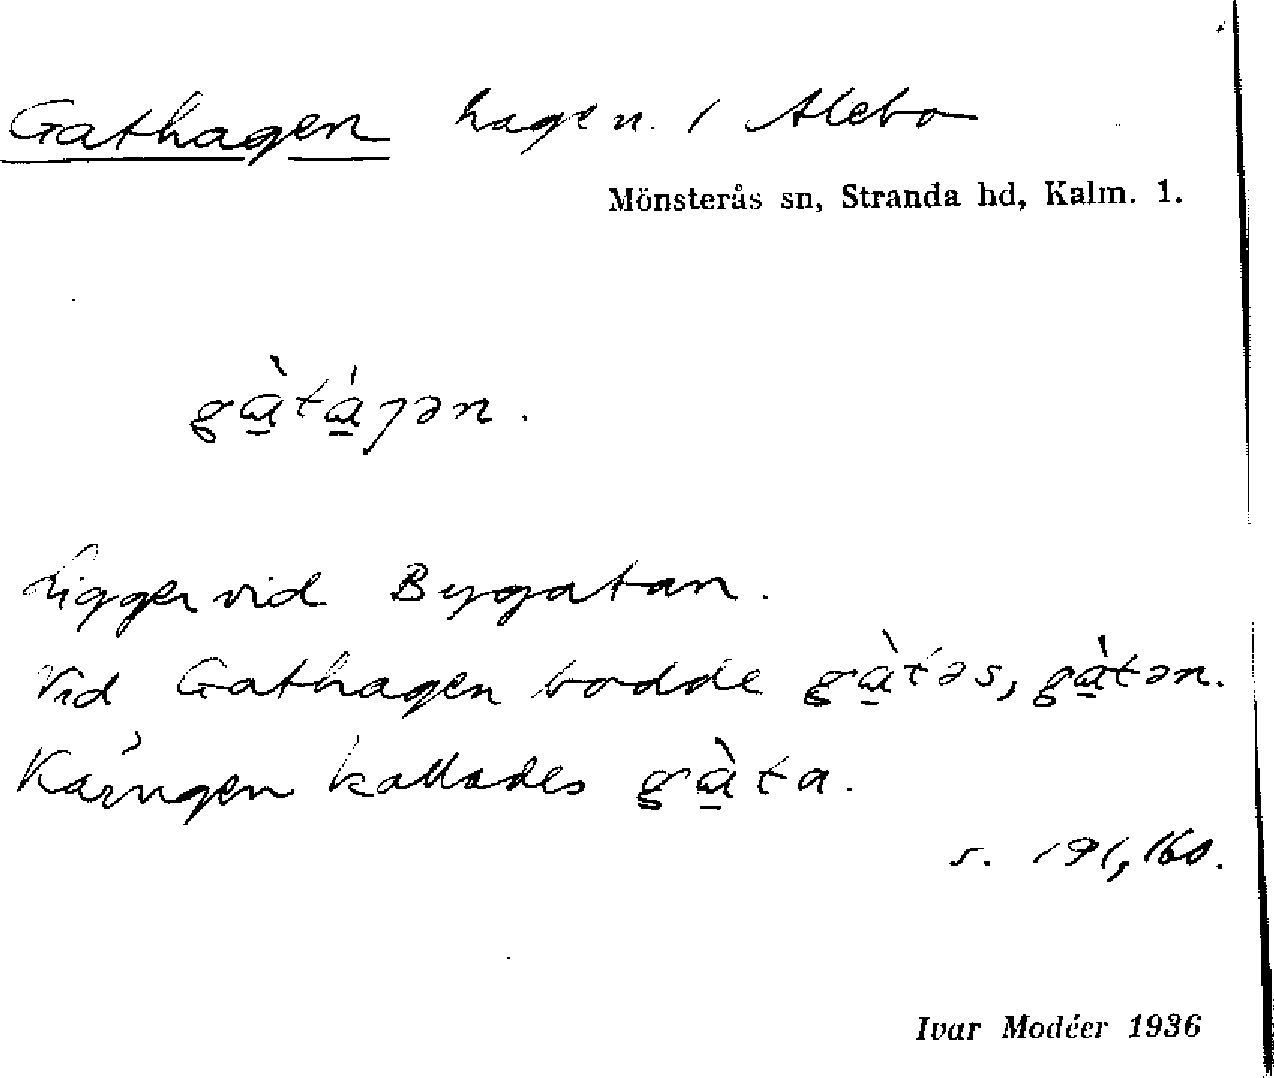 Gathagen hagen. / Alebo
Mönsterås sn, Stranda hd, Kalm. 1.
gɑ̀tɑ́ɡən.
Ligger vid Bygatan.
Vid Gathagen bodde gɑ̀təs, gɑ̀tən.
Käringen kallades gɑ̀ta.
s. 191, 160.
Ivar Modéer 1936